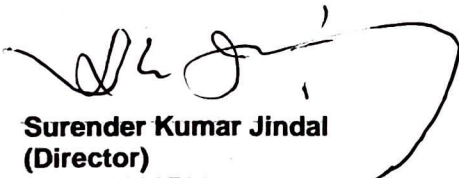 Surender Kumar Jindal
(Director)